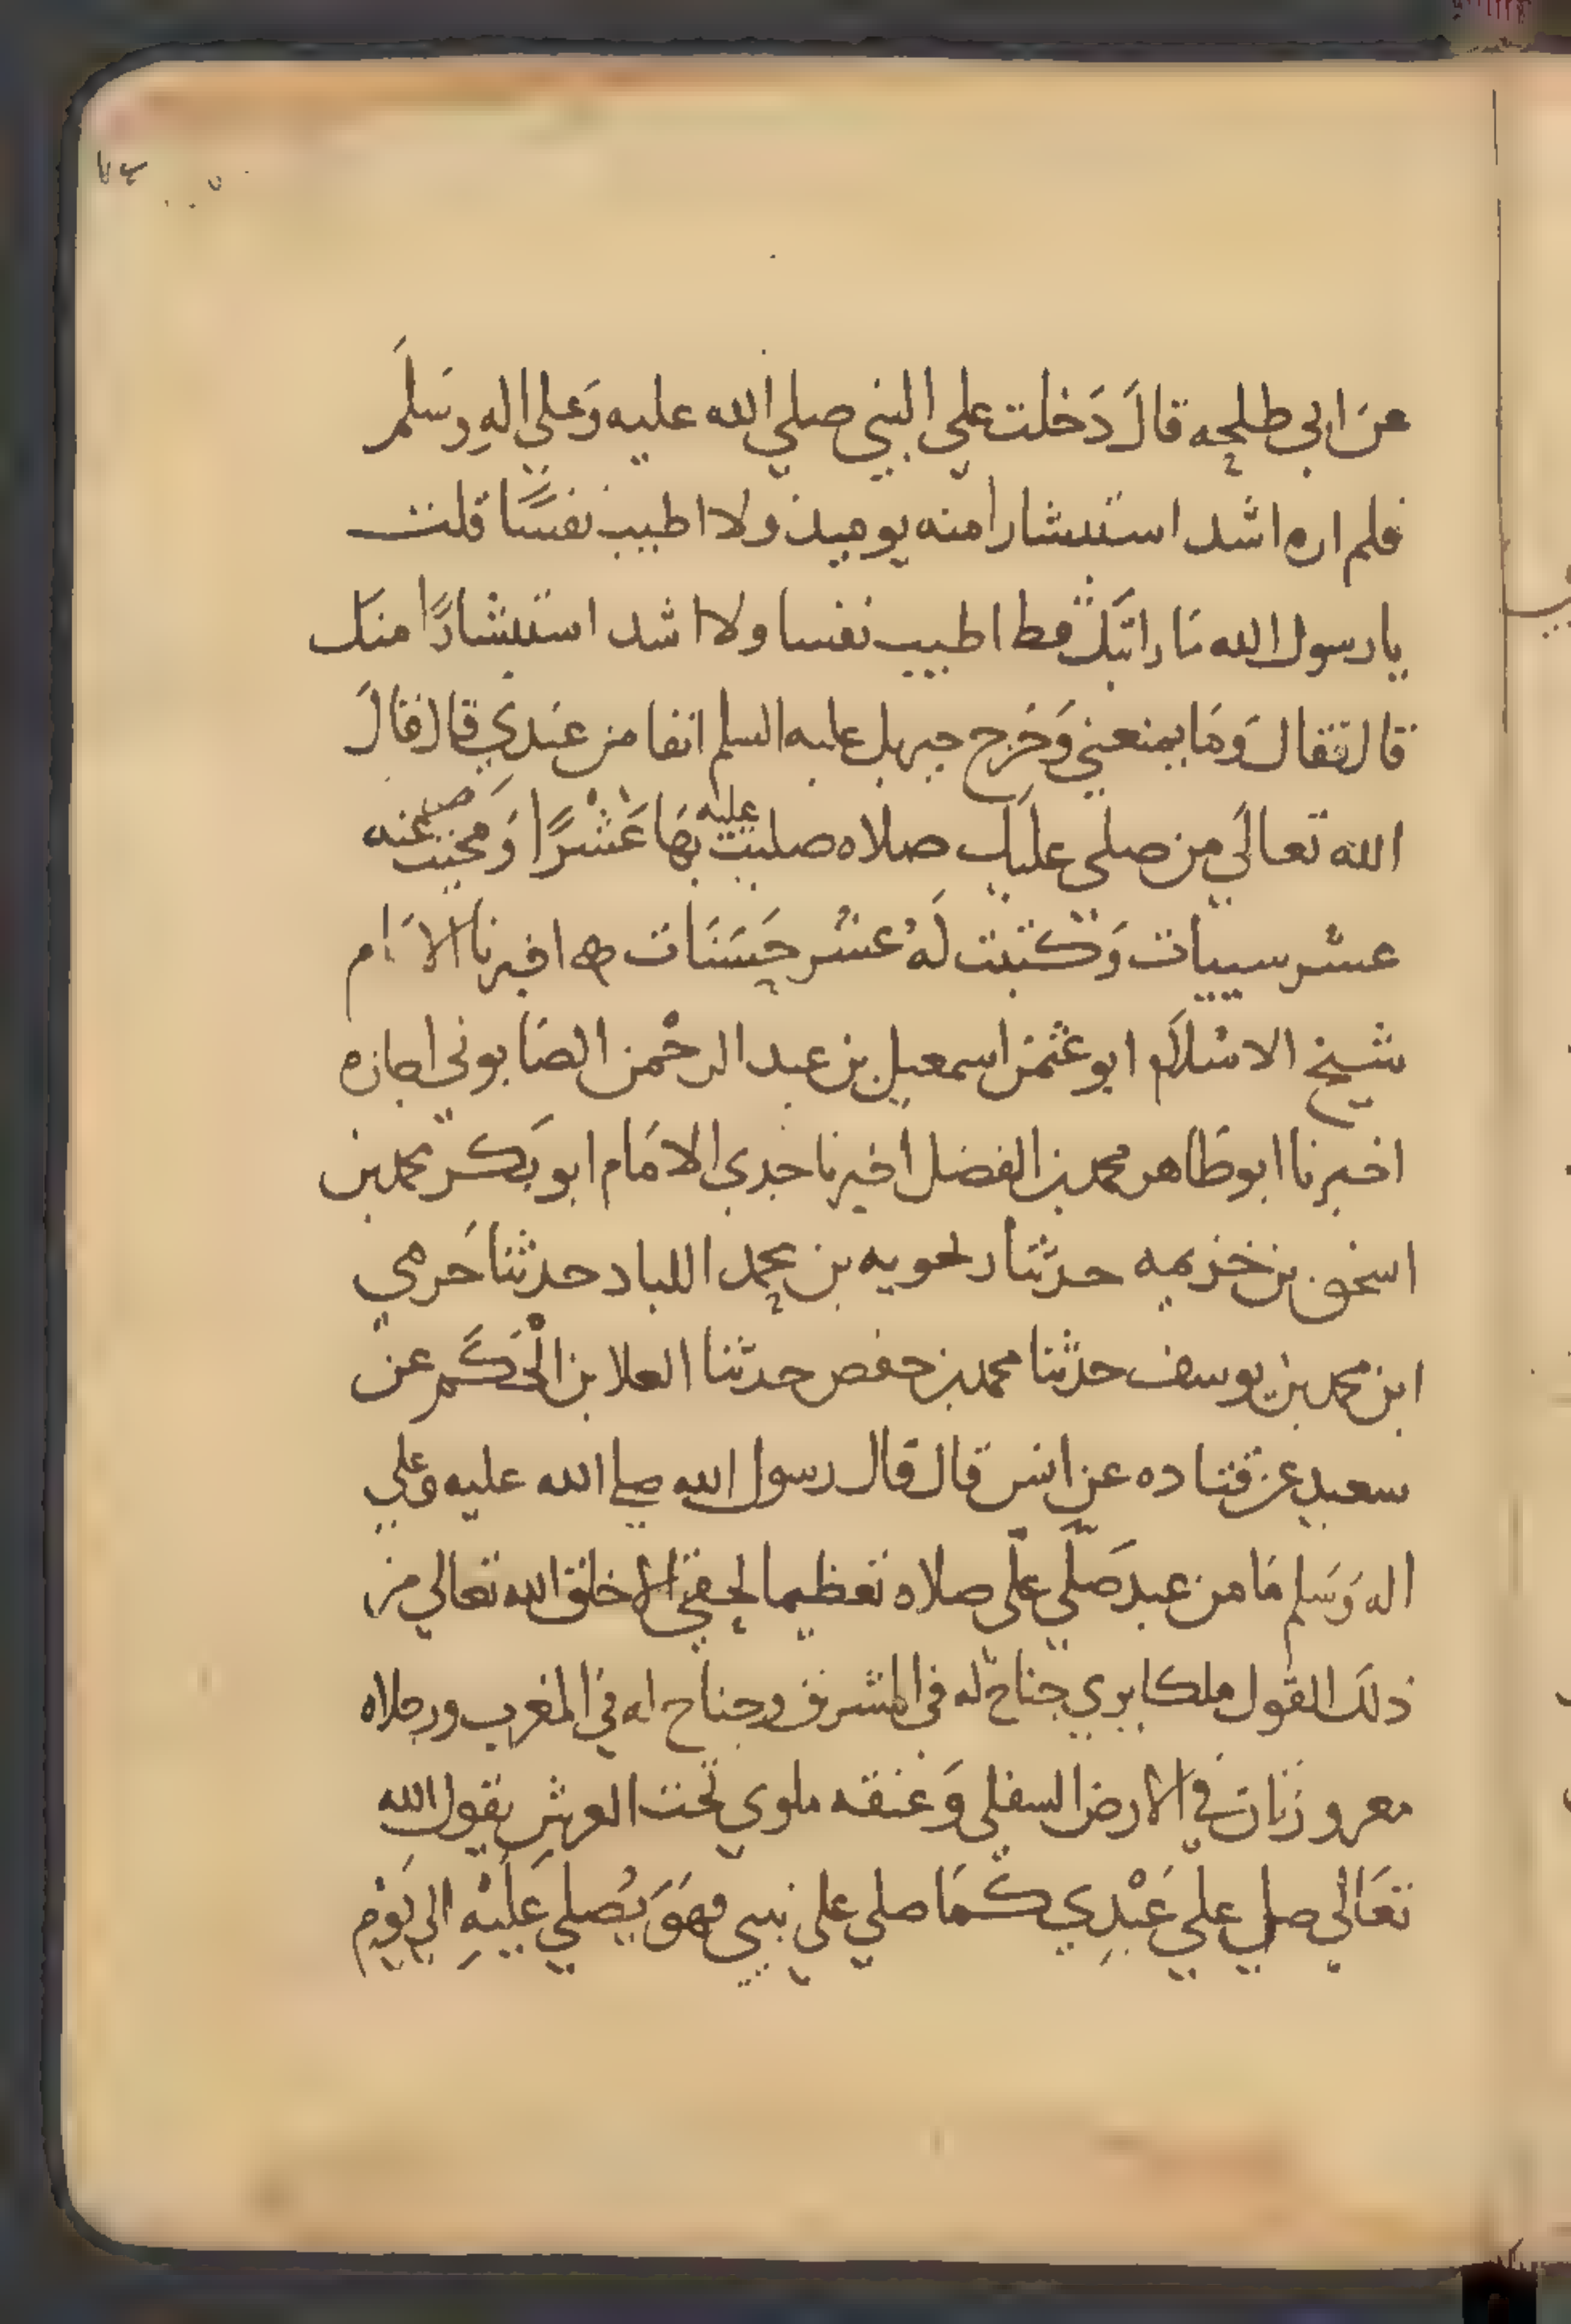 عن ابي طلحه قال دخلت علي النبي صلي الله عليه وعلي اله وسلم
فلم اره اشد استبشارا منه يوميذ ولا اطيب نفسًا قلت
يا رسول الله ما رايتك قط اطيب نفسا ولا اشد استبشارًا منك
قال فقال وما يمنعني وخرج جبريل عليه السلم انفا من عندي قال فقال
الله تعالي من صلي عليك صلاه صليت عليه بها عشرًا ومحيت عنه
عشر سييات وكتبت له عشر حسنات اخبرنا الامام
شيخ الاسلام ابو عثمن اسمعيل بن عبد الرحمن الصابوني اجازه
اخبرنا ابو طاهر محمد بن الفضل اخبرنا جدي الامام ابو بكر محمد بن
اسحق بن خزيمه حدثنا محمد اللباد حدثنا حرمي
ابن محمد بن يوسف حدثنا محمد بن حفص حدثنا العلا بن الحكم عن
سعيد عن قتاده عن انس قال قال رسول الله صلي الله عليه وعلي
اله وسلم ما من عبد صلي علي صلاه تعظيما لحقي الا خلق الله تعالي من
ذلك القول ملكا يري جناح له في المشرق وجناح له في المغرب ورجلاه
معروزتان في الارض السفلي وعنقه ملوي تحت العرش يقول الله
تعالي صل علي عبدي كما صلي علي نبيي فهو يصلي عليه الي يوم